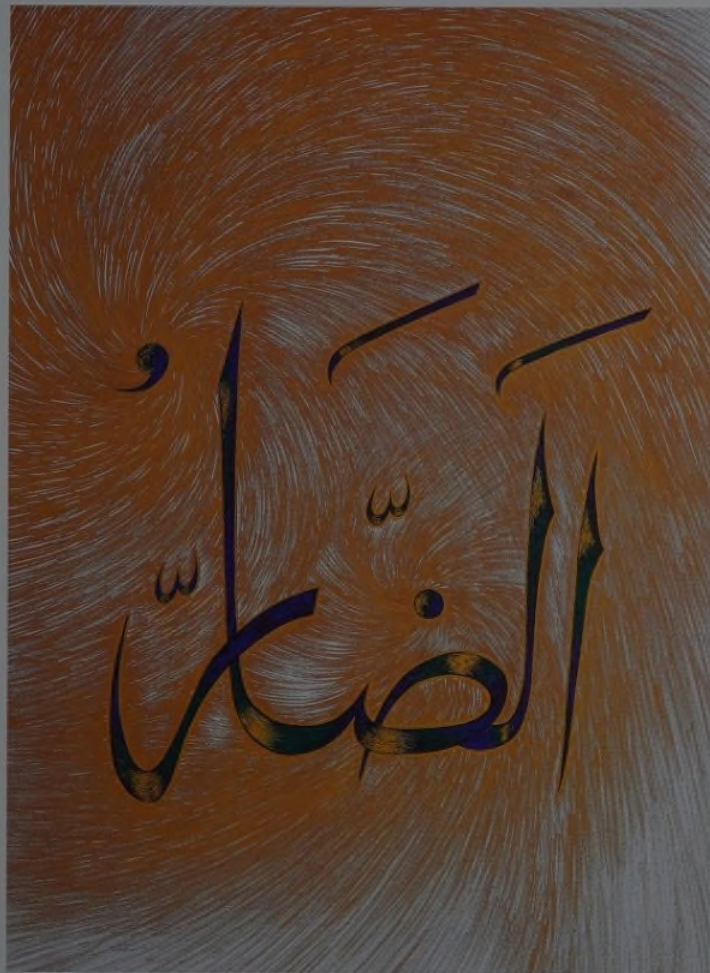 الَضَّارُّ